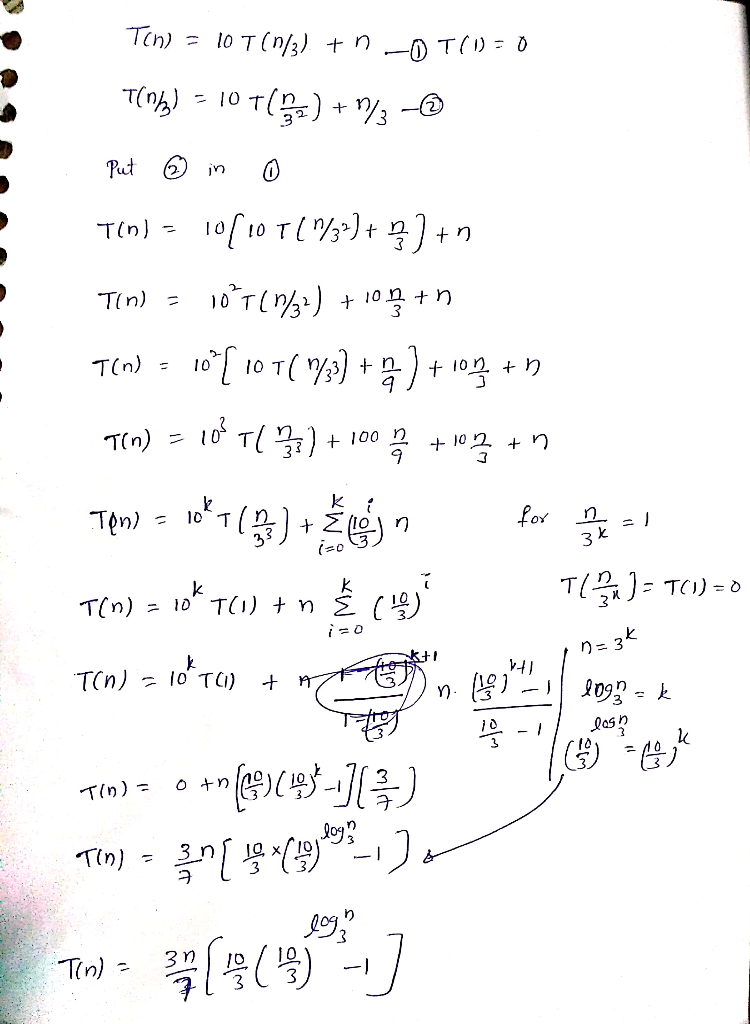 T(n) = 10 T(n/3) + n —① T(1) = 0
T(n/3) = 10 T(n/3²) + n/3 —②
Put ② in ①
T(n) = 10[10 T(n/3²) + n/3] + n
T(n) = 10² T(n/3²) + 10 n/3 + n
T(n) = 10²[10 T(n/3³) + n/9] + 10 n/3 + n
T(n) = 10³ T(n/3³) + 100 n/9 + 10 n/3 + n
T(n) = 10^k T(n/3³) + Σ_{i=0}^{k} (10/3)^i n
for n/3^k = 1
T(n) = 10^k T(1) + n Σ_{i=0}^{k} (10/3)^i
T(n/3^k) = T(1) = 0
T(n) = 10^k T(1) + n · ((10/3)^{k+1} - 1)/(10/3 - 1)
n = 3^k
log_3 n = k
(10/3)^{log_3 n} = (10/3)^k
T(n) = 0 + n[(10/3)(10/3)^k - 1](3/7)
T(n) = 3/7 n[10/3 × (10/3)^{log_3 n} - 1]
T(n) = 3n/7 [10/3 (10/3)^{log_3 n} - 1]